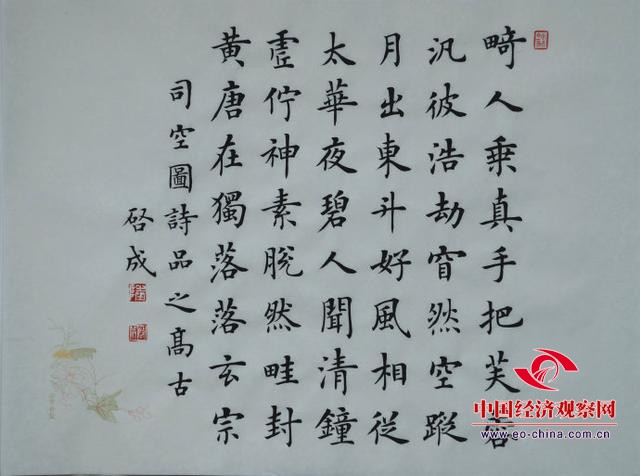 畸人乗真手把芙蓉
汎彼浩劫窅然空蹤
月出東斗好風相従
太華夜碧人聞清鐘
虗佇神素脫然畦封
黃唐在獨落落玄宗
司空圖詩品之髙古
啓成
中国经济观察网
www.eo-china.com.cn